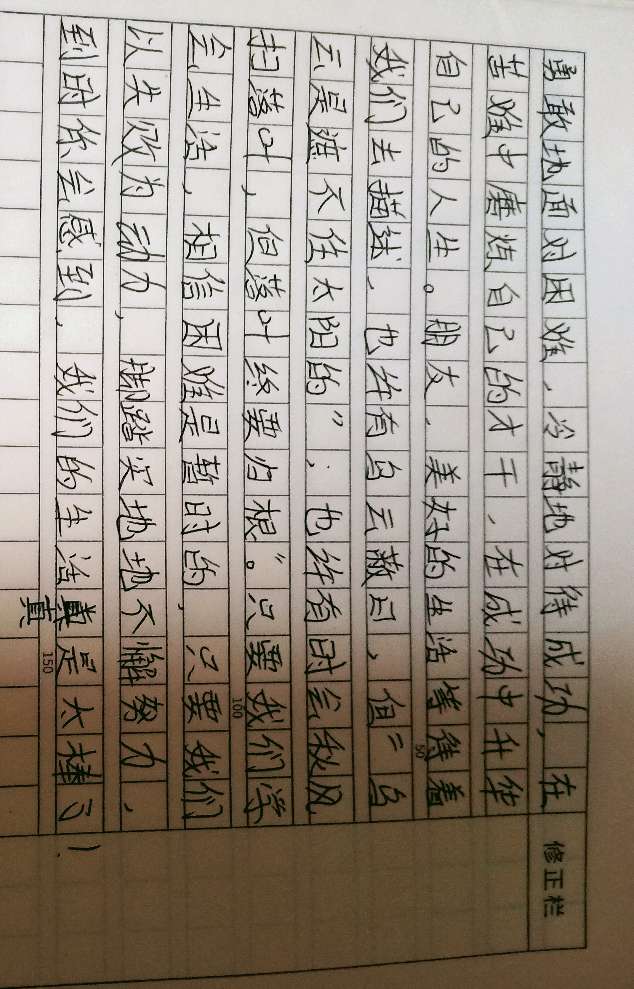 勇敢地面对困难、冷静地对待成功，在
苦难中磨炼自己的才干、在成功中升华
自己的人生。朋友、美好的生活等待着
我们去描述、也许有乌云蔽日，但“乌
云是遮不住太阳的”；也许有时会秋风
扫落叶，但落叶终要归根”。只要我们学
会生活、相信困难是暂时的，只要我们
以失败为动力，脚踏实地地不懈努力、
到时你会感到、我们的生活真是太棒了！
真
修正栏
50
100
150